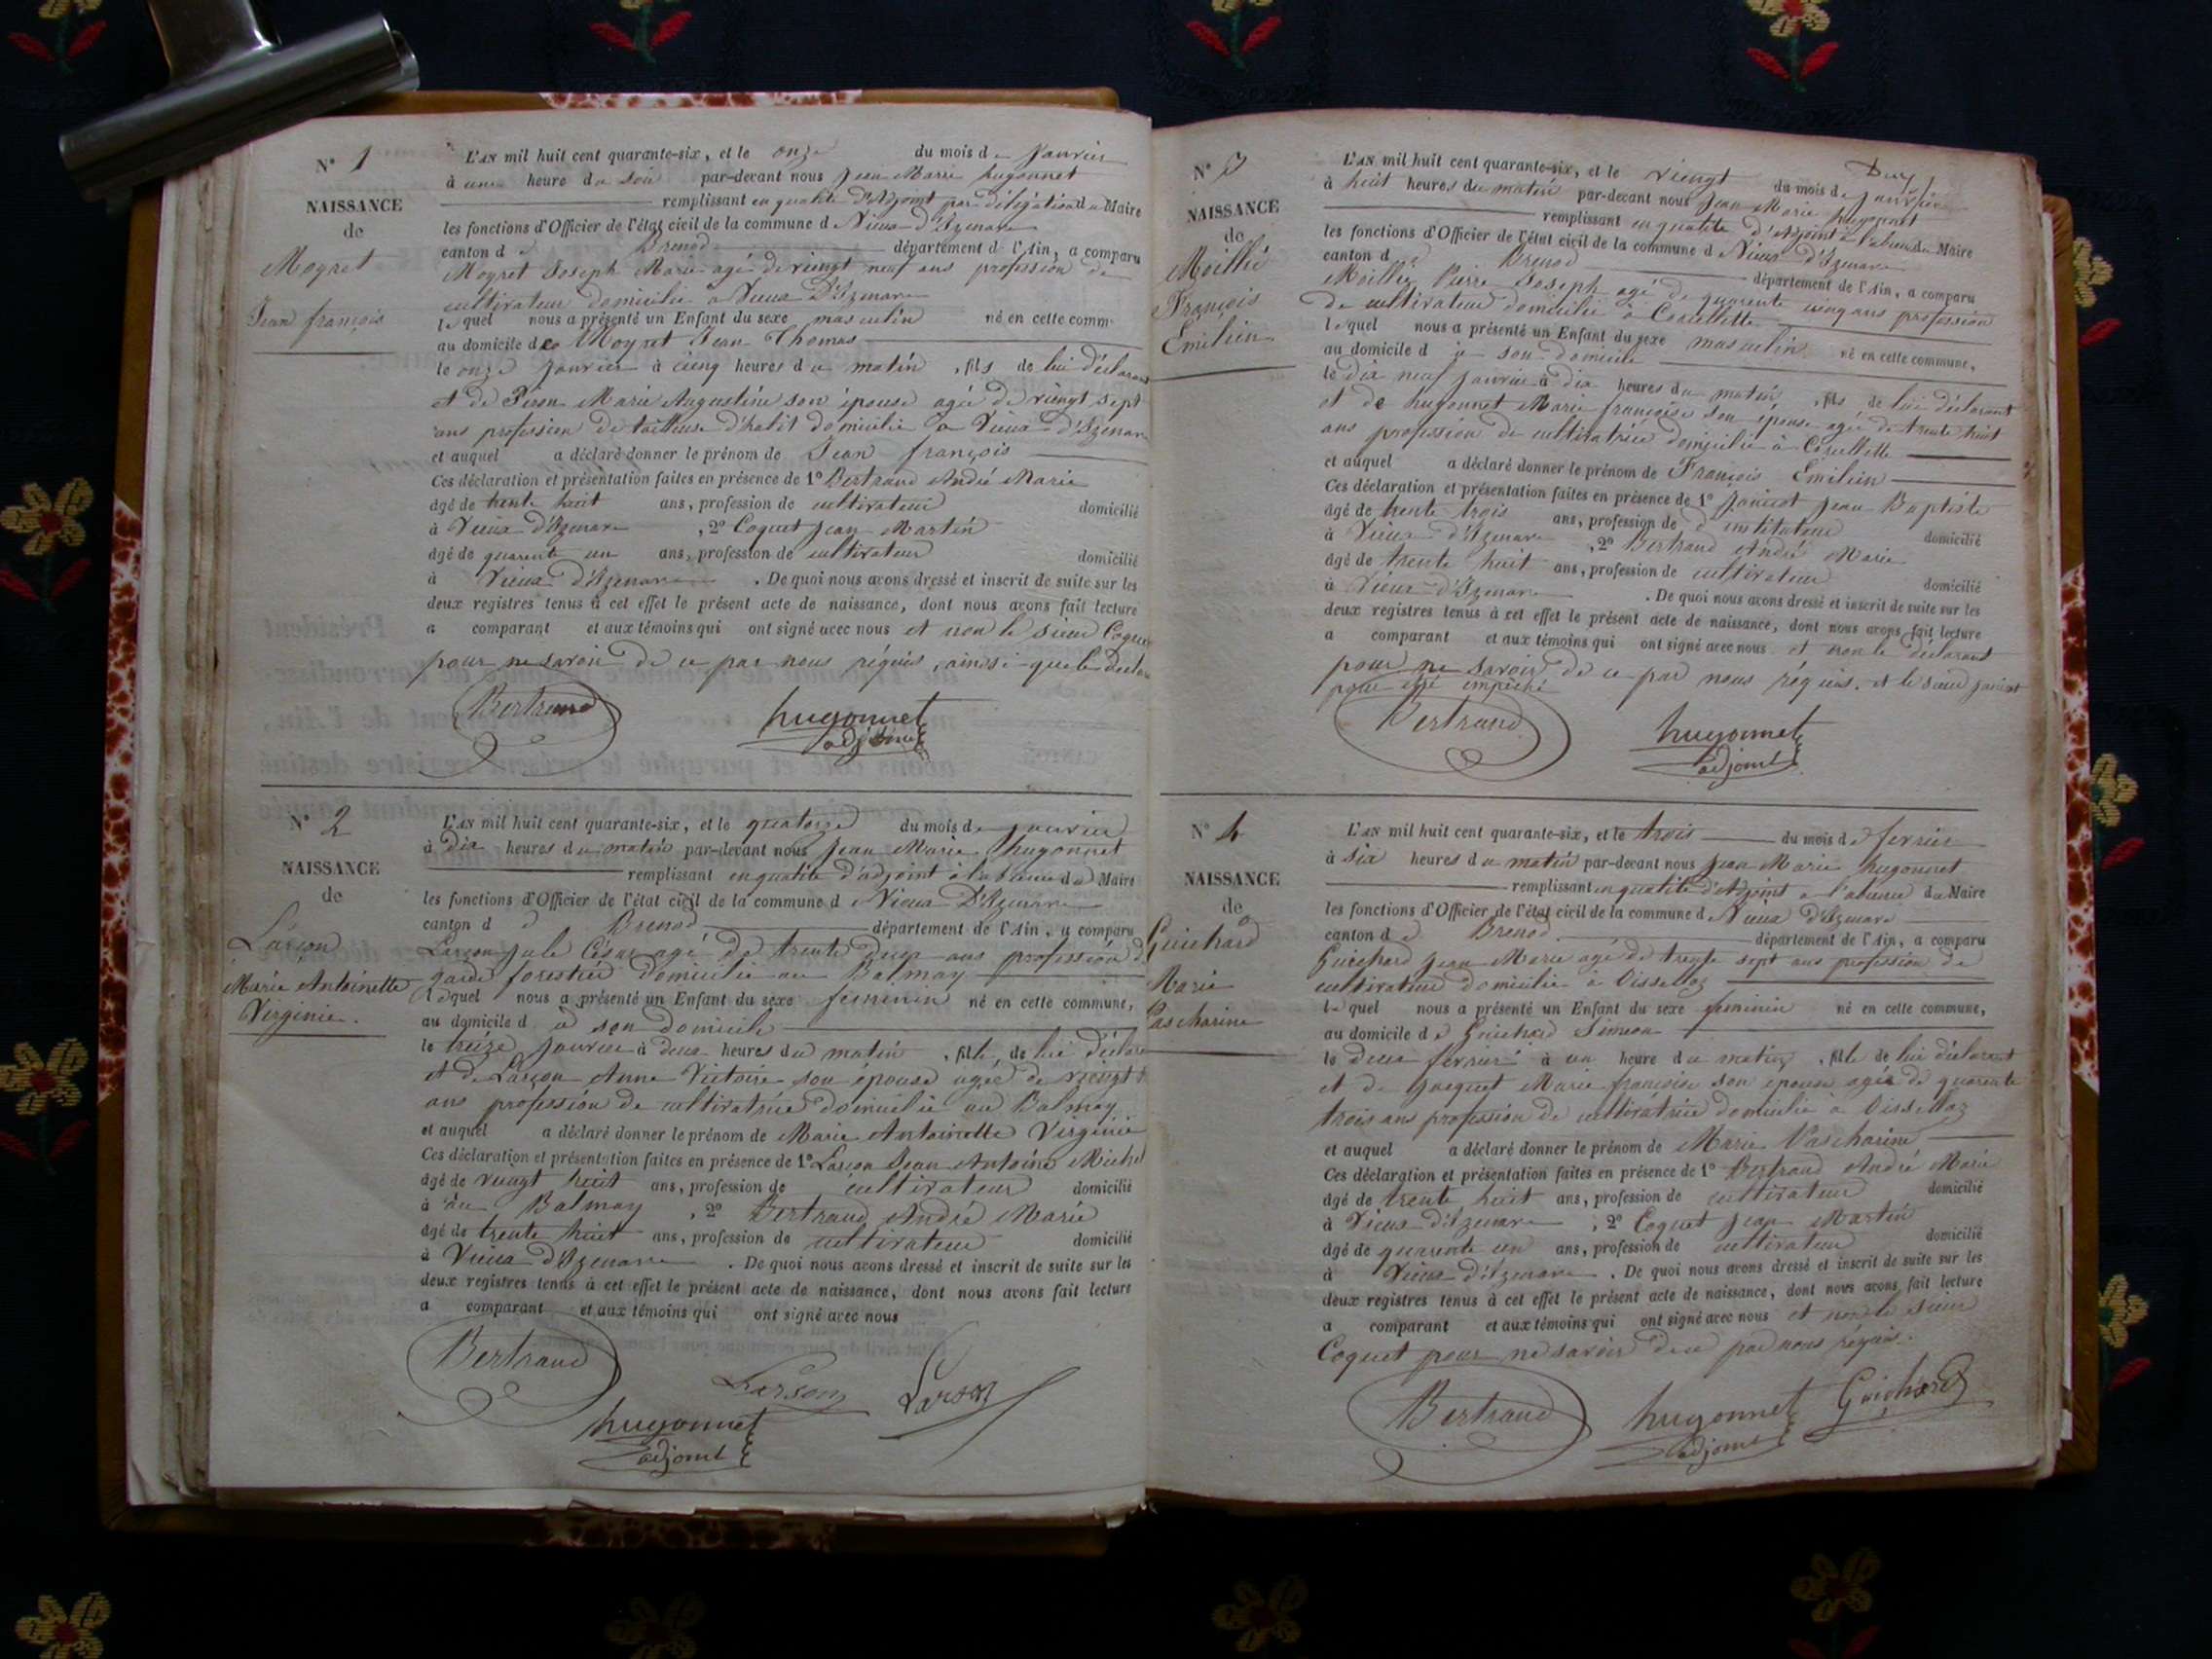 N° 1
NAISSANCE
de
Moyret
Jean françois
L'AN mil huit cent quarante-six, et le onze du mois de Janvier
à une heure du soir par-devant nous Jean Marie hugonnet
remplissant en qualité d'Adjoint par délégation du Maire
les fonctions d'Officier de l'état civil de la commune d Vieux d'Izenave
canton d e Brenod département de l'Ain, a comparu
Moyret Joseph Marie agé de vingt neuf ans profession de
cultivateur domicilié à Vieux D'Izenave
lequel nous a présenté un Enfant du sexe masculin né en cette comm.
au domicile de Moyret Jean Thomas
le onze janvier à cinq heures du matin, fils de lui déclarant
et de Marie Augustine son épouse agée de vingt sept
ans profession de tailleuse d'habit domicilié à Vieux d'Izenave
et auquel a déclaré donner le prénom de Jean françois
Ces déclaration et présentation faites en présence de 1° Bertrand André Marie
âgé de trente huit ans, profession de cultivateur domicilié
à Vieux d'Izenave, 2° Coquet Jean Martin
âgé de quarente un ans, profession de cultivateur domicilié
à Vieux d'Izenave. De quoi nous avons dressé et inscrit de suite sur les
deux registres tenus à cet effet le présent acte de naissance, dont nous avons fait lecture
a comparant et aux témoins qui ont signé avec nous et non le sieur Coquet
pour ne savoir de ce par nous réquis, ainsi que le déclar
Bertrand
hugonnet
adjoint
N° 2
NAISSANCE
de
Larçon
Marie Antoinette
Virginie.
L'AN mil huit cent quarante-six, et le quatorze du mois de janvier
à dix heures du matin par-devant nous Jean Marie hugonnet
remplissant en qualité d'adjoint à l'absence du Maire
les fonctions d'Officier de l'état civil de la commune d Vieux D'Izenave
canton d e Brenod département de l'Ain, a comparu
Larçon Jule César agé de trente deux ans profession d
garde forestier domicilié au Balmay
lequel nous a présenté un Enfant du sexe femenin né en cette commune,
au domicile d à son domicile
le treize janvier à deux heures du matin, fille de lui déclara
et de Larçon Anne Victoire son épouse agée de vingt
ans profession de cultivatrice domicilié au Balmay
et auquel a déclaré donner le prénom de Marie Antoinette Virginie
Ces déclaration et présentation faites en présence de 1° Larçon Jean Antoine Michel
âgé de vingt huit ans, profession de cultivateur domicilié
à au Balmay, 2° Bertrand André Marie
âgé de trente huit ans, profession de cultivateur domicilié
à Vieux d'Izenave. De quoi nous avons dressé et inscrit de suite sur les
deux registres tenus à cet effet le présent acte de naissance, dont nous avons fait lecture
a comparant et aux témoins qui ont signé avec nous
Bertrand
Larson
Larson
hugonnet
adjoint
N° 3
NAISSANCE
de
Moillie
François
Emilien
L'AN mil huit cent quarante-six, et le vingt du mois de janvier
à huit heures du matin par-devant nous Jean Marie hugonnet
remplissant en qualité d'Adjoint à l'absence du Maire
les fonctions d'Officier de l'état civil de la commune d Vieux d'Izenave
canton d e Brenod département de l'Ain, a comparu
Moillie Pierre Joseph agé de quarente cinq ans profession
de cultivateur domicilié à Corcellette
lequel nous a présenté un Enfant du sexe masculin né en cette commune,
au domicile d à son domicile
le dix neuf janvier à dix heures du matin, fils de lui déclarant
et de hugonnet Marie françoise son épouse agée de trente huit
ans profession de cultivatrice domicilié à Corcellette
et auquel a déclaré donner le prénom de François Emilien
Ces déclaration et présentation faites en présence de 1° Janicot Jean Baptiste
âgé de trente trois ans, profession de d'instituteur domicilié
à Vieux d'Izenave, 2° Bertrand André Marie
âgé de trente huit ans, profession de cultivateur domicilié
à Vieux d'Izenave. De quoi nous avons dressé et inscrit de suite sur les
deux registres tenus à cet effet le présent acte de naissance, dont nous avons fait lecture
a comparant et aux témoins qui ont signé avec nous et non le déclarant
pour ne savoir de ce par nous réquis. et le sieur janicot
pour été impêché
Bertrand
hugonnet
adjoint
N° 4
NAISSANCE
de
Guichard
Marie
Pascharine
L'AN mil huit cent quarante-six, et le trois du mois de fevrier
à six heures du matin par-devant nous Jean Marie hugonnet
remplissant en qualité d'Adjoint a l'absence du Maire
les fonctions d'Officier de l'état civil de la commune d Vieux d'Izenave
canton d e Brenod département de l'Ain, a comparu
Guichard Jean Marie agé de trente sept ans profession de
cultivateur domicilié à Oissellaz
lequel nous a présenté un Enfant du sexe feminin né en cette commune,
au domicile de Guichard Simeon
le deux fevrier à un heure du matin, fille de lui déclarant
et de Jacquet Marie françoise son épouse agée de quarente
trois ans profession de cultivatrice domicilié à Oissellaz
et auquel a déclaré donner le prénom de Marie Pascharine
Ces déclaration et présentation faites en présence de 1° Bertrand André Marie
âgé de trente huit ans, profession de cultivateur domicilié
à Vieux d'Izenave, 2° Coquet Jean Martin
âgé de quarente un ans, profession de cultivateur domicilié
à Vieux d'Izenave. De quoi nous avons dressé et inscrit de suite sur les
deux registres tenus à cet effet le présent acte de naissance, dont nous avons fait lecture
a comparant et aux témoins qui ont signé avec nous et non le sieur
Coquet pour ne savoir de ce par nous réquis.
Bertrand
hugonnet
adjoint
Guichard